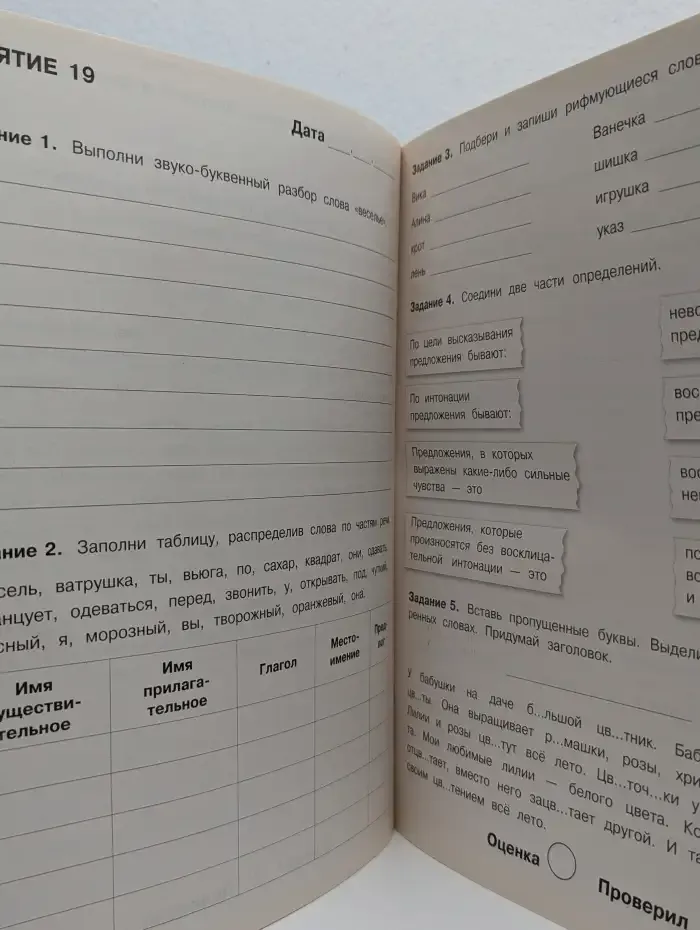 ЯТИЕ 19
Дата
ние 1. Выполни звуко-буквенный разбор слова «веселье».
ние 2. Заполни таблицу, распределив слова по частям речи.
сель, ватрушка, ты, вьюга, по, сахар, квадрат, они, сдавать,
нцует, одеваться, перед, звонить, у, открывать, под, чуткий,
сный, я, морозный, вы, творожный, оранжевый, она.
Имя
уществи-
тельное
Имя
прилага-
тельное
Глагол
Место-
имение
Пред-
лог
Задание 3. Подбери и запиши рифмующиеся слов
Вика
Алина
крот
лень
Ванечка
шишка
игрушка
указ
Задание 4. Соедини две части определений.
По цели высказывания
предложения бывают:
По интонации
предложения бывают:
Предложения, в которых
выражены какие-либо сильные
чувства — это
Предложения, которые
произносятся без восклица-
тельной интонации — это
нево
пред
вос
пре
вос
нев
по
во
и
Задание 5. Вставь пропущенные буквы. Выдели
ренных словах. Придумай заголовок.
У бабушки на даче б...льшой цв...тник. Баб
цв...ты. Она выращивает р...машки, розы, хри
Лилии и розы цв...тут всё лето. Цв...точ...ки у
та. Мои любимые лилии — белого цвета. Ко
отцв...тает, вместо него зацв...тает другой. И та
своим цв...тением всё лето.
Оценка
Проверил